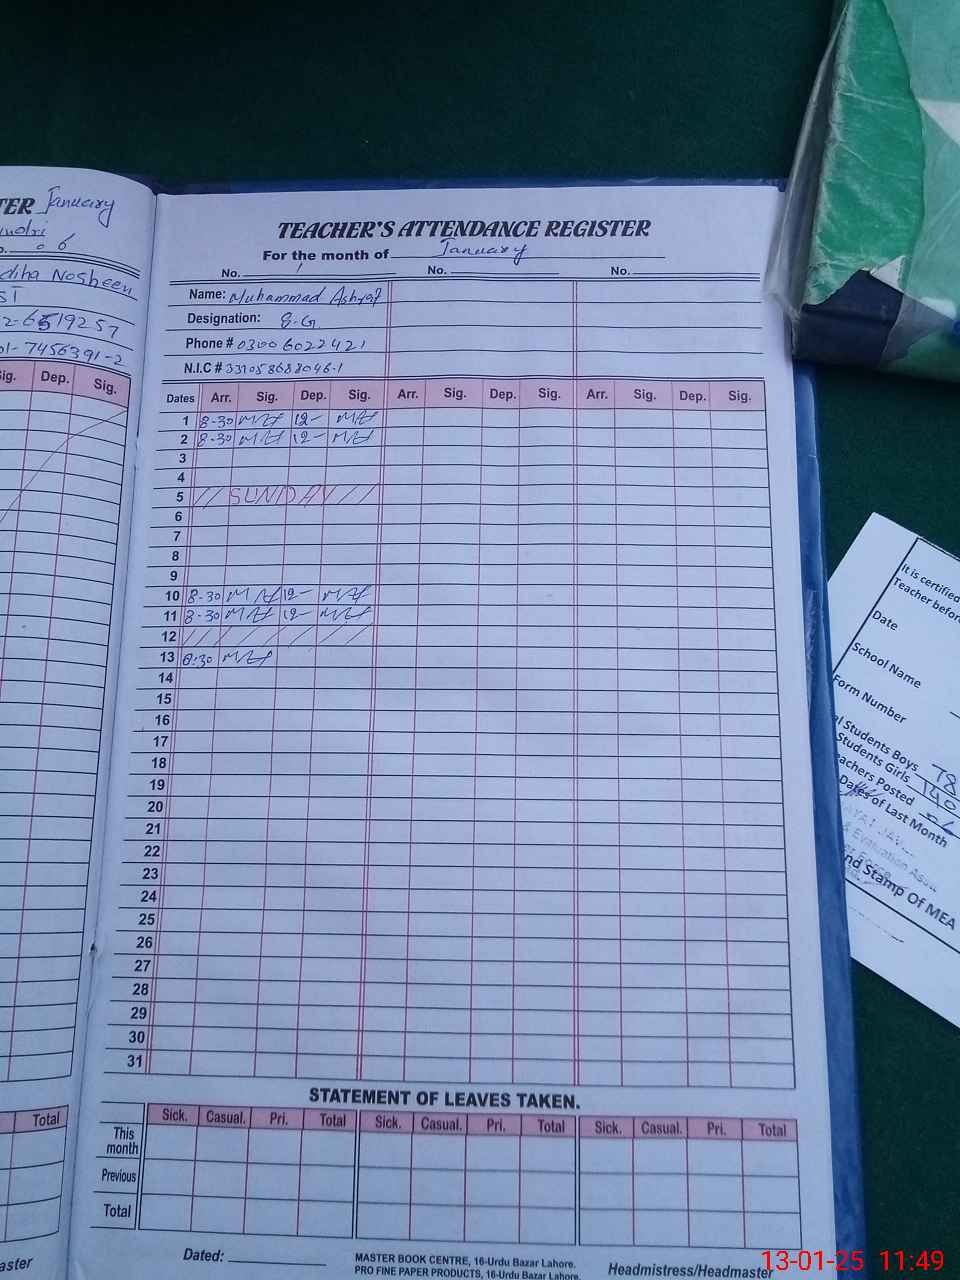 TER January
ndri
o. 06
diha Nosheen
ST
2-6519257
01-7456391-2
Sig. Dep. Sig.
Total
aster
TEACHER'S ATTENDANCE REGISTER
For the month of January
No. 1 No. No.
Name: Muhammad Ashraf
Designation: S.G
Phone # 0300 6022421
N.I.C #
Dates Arr. Sig. Dep. Sig. Arr. Sig. Dep. Sig. Arr. Sig. Dep. Sig.
1 8-30 12-
2 8-30 12-
3
4
5 // SUNDAY //
6
7
8
9
10 8-30 12-
11 8-30 12-
12 / / / / / / / /
13 8:30
14
15
16
17
18
19
20
21
22
23
24
25
26
27
28
29
30
31
STATEMENT OF LEAVES TAKEN.
Sick. Casual. Pri. Total Sick. Casual. Pri. Total Sick. Casual. Pri. Total
This month
Previous
Total
Dated:
MASTER BOOK CENTRE, 16-Urdu Bazar Lahore.
PRO FINE PAPER PRODUCTS, 16-Urdu Bazar Lahore.
Headmistress/Headmaster
It is certified
Teacher before
Date
School Name
Form Number
l Students Boys 78
Students Girls 140
achers Posted 06
Dates of Last Month
& Evaluation Assi
nd Stamp Of MEA
13-01-25 11:49